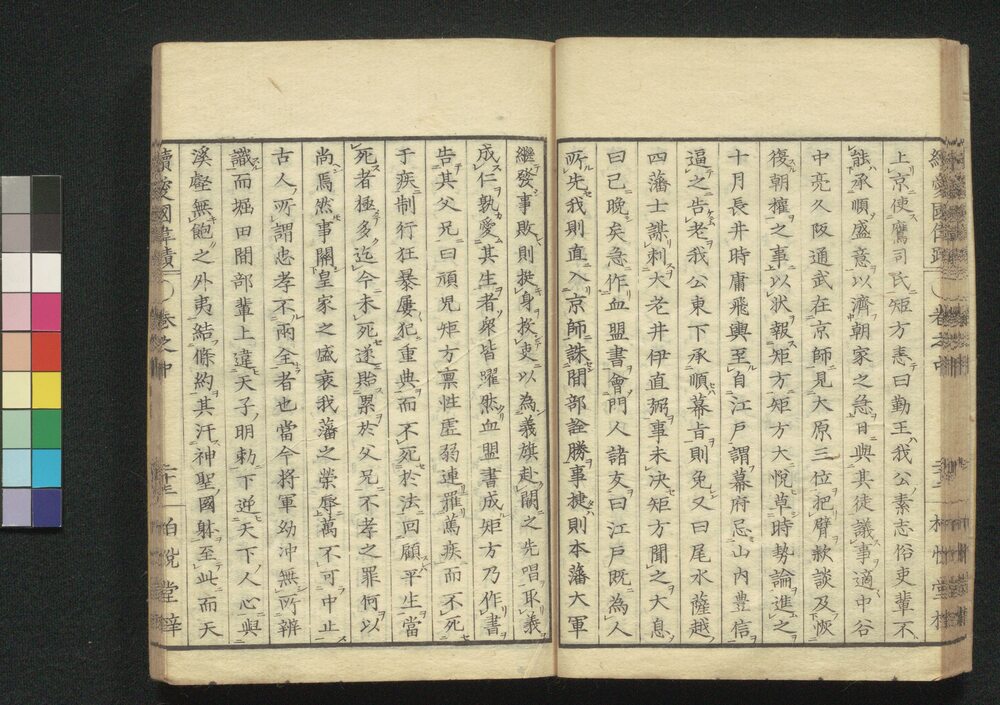 上京使鷹司氏矩方恚曰勤王我公素志俗吏輩不
能承順盛意以濟朝家之急日與其徒議事適中谷
中亮久阪通武在京師見大原三位把臂欵談及恢
復朝權之事以状報矩方矩方大悅草時勢論進之
十月長井時庸飛輿至自江戸謂幕府忌山内豊信
逼之告老我公東下承順幕旨則免又曰尾水薩越
四藩士謀刺大老井伊直弼事未决矩方聞之大息
曰已晚矣急作血盟書會門人諸友曰江戸既為人
所先我則直入京師誅間部詮勝事捷則本藩大軍
繼發事敗則挺身投吏以為義旗赴闕之先唱取義
成仁孰愛其生者衆皆躍然血盟書成矩方乃作書
告其父兄曰頑児矩方禀性虚弱連羅篤疾而不死
于疾制行狂暴屢犯重典而不死於法回顧平生當
死者極多迄今未死遂貽累於父兄不孝之罪何以
尚焉然事關皇家之盛衰我藩之榮辱萬不可中止
古人所謂忠孝不兩全者也當今将軍幼冲無所辨
識而堀田間部輩上違天子明勅下逆天下人心與
溪壑無飽之外夷結條約其汙神聖國躰至此而天
續愛國偉蹟 〇巻之中 二十三